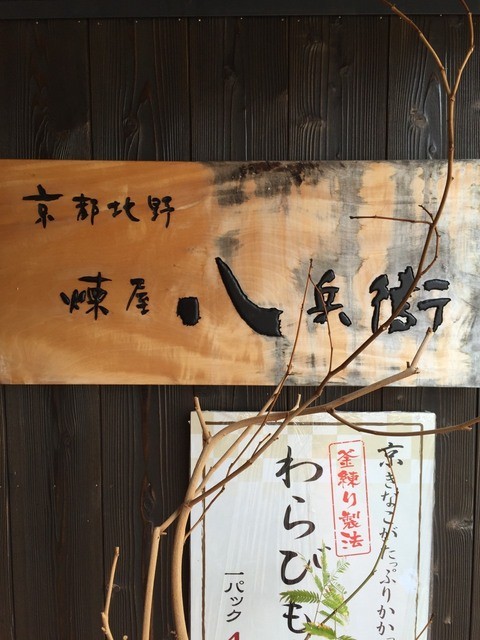 京都北野
煉屋八兵衛
京きなこがたっぷりかか
釜練り製法
わらびも
一パック